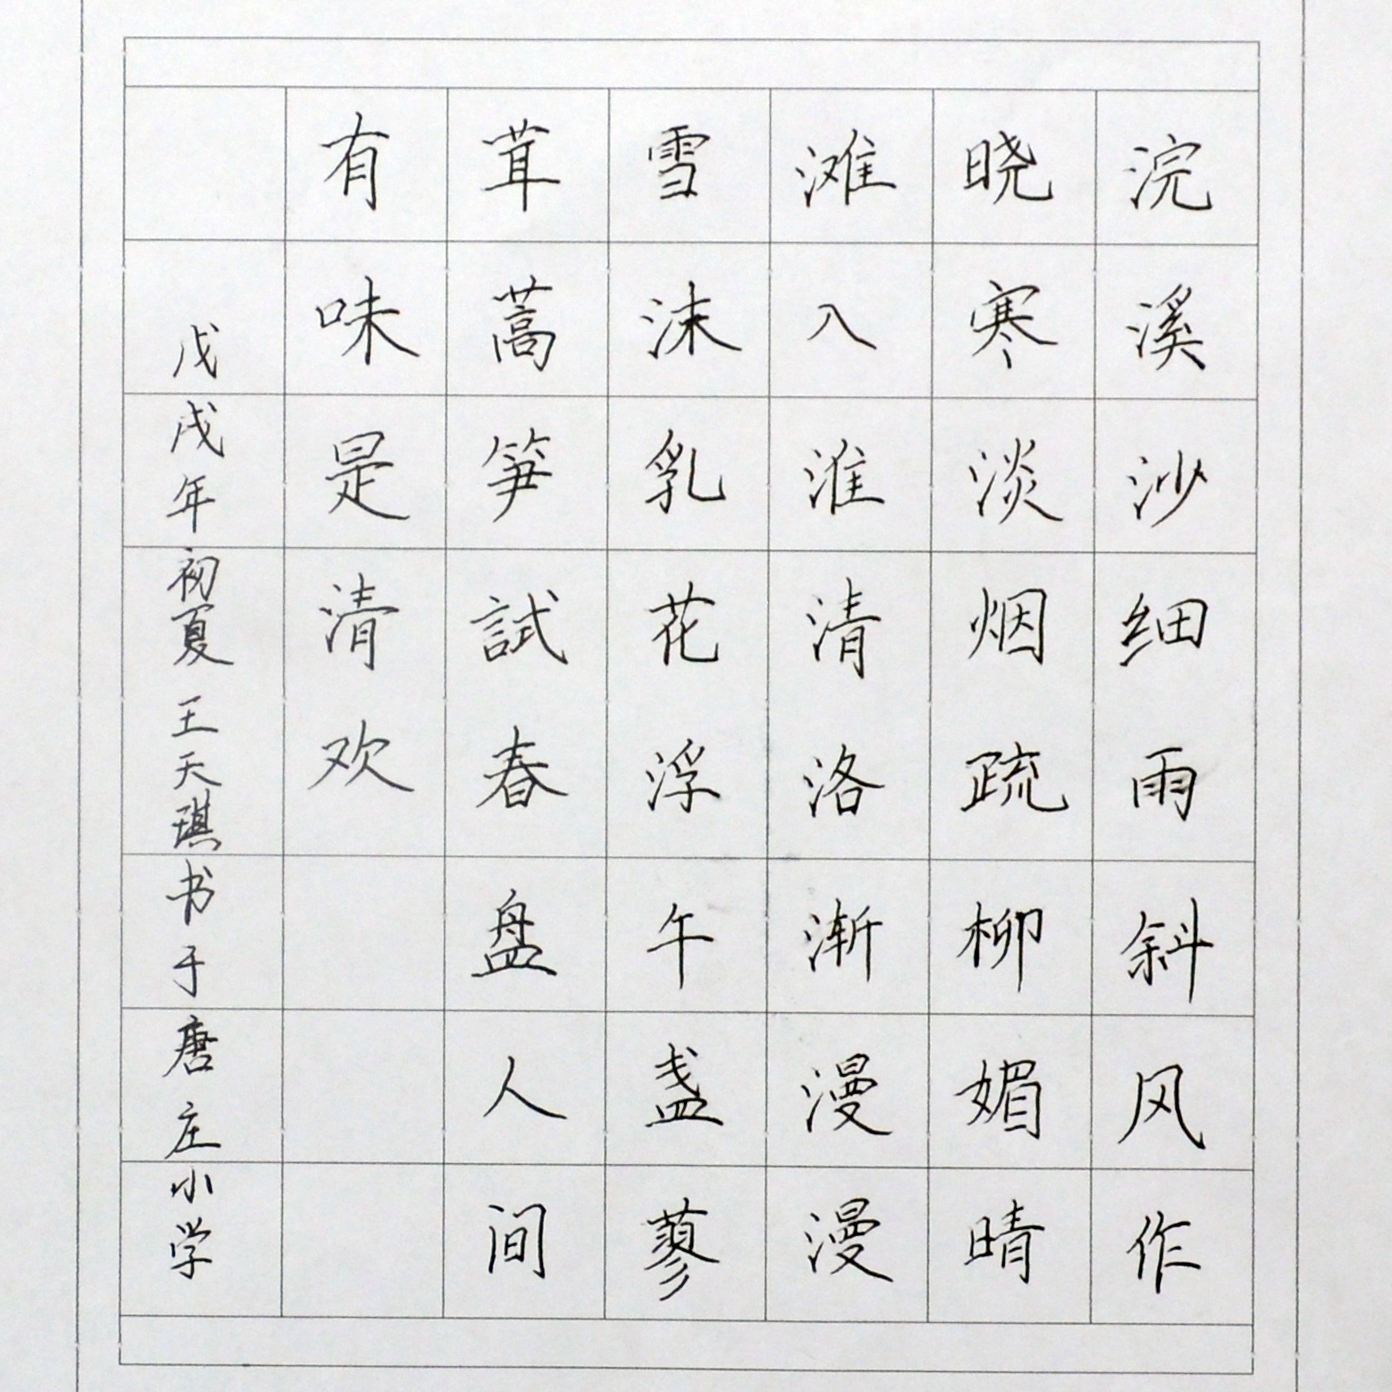 浣溪沙细雨斜风作
晓寒淡烟疏柳媚晴
滩入淮清洛渐漫漫
雪沫乳花浮午盏蓼
茸蒿笋試春盘人间
有味是清欢
戊戌年初夏王天琪书于唐庄小学